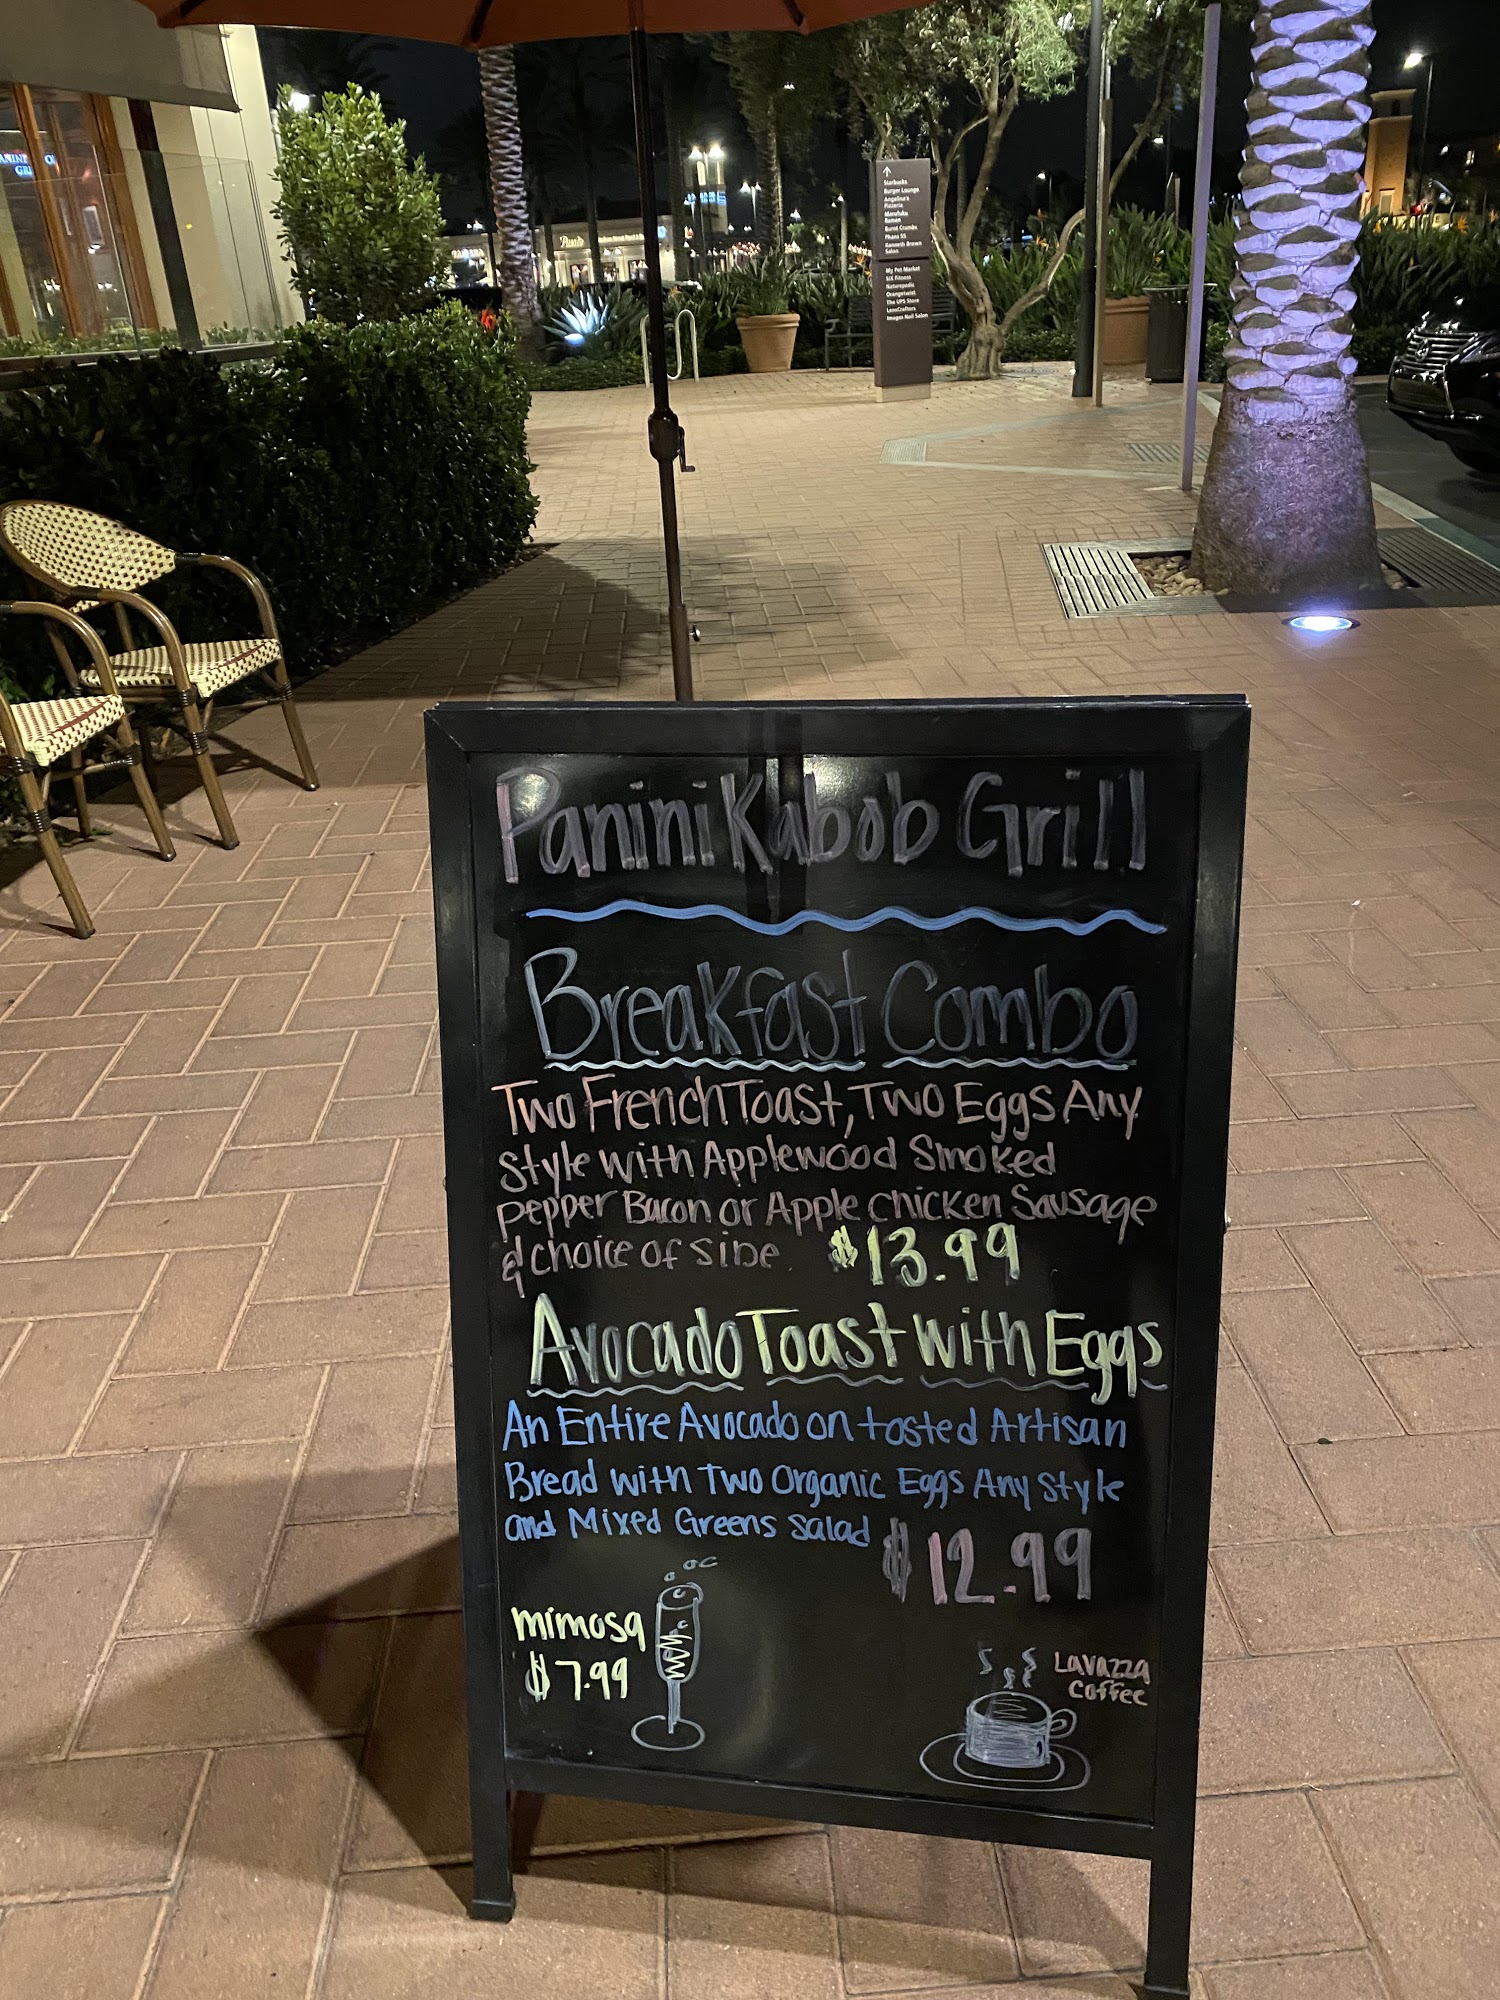 Starbucks
Burger Lounge
Angelina's
Pizzeria
Manufuku
Ramen
Burnt Crumbs
Phans 55
Kenneth Brown
Salon
My Pet Market
SiX Fitness
Naturepedic
Orangetwist
The UPS Store
LensCrafters
Images Nail Salon
Panini Kabob Grill
Breakfast Combo
Two French Toast, Two Eggs Any
Style with Applewood Smoked
pepper Bacon or Apple chicken Sausage
& choice of Side. $13.99
Avocado Toast with Eggs
An Entire Avocado on tosted Artisan
Bread with Two Organic Eggs Any Style
and Mixed Greens Salad $12.99
mimosa
$7.99
Lavazza
Coffee